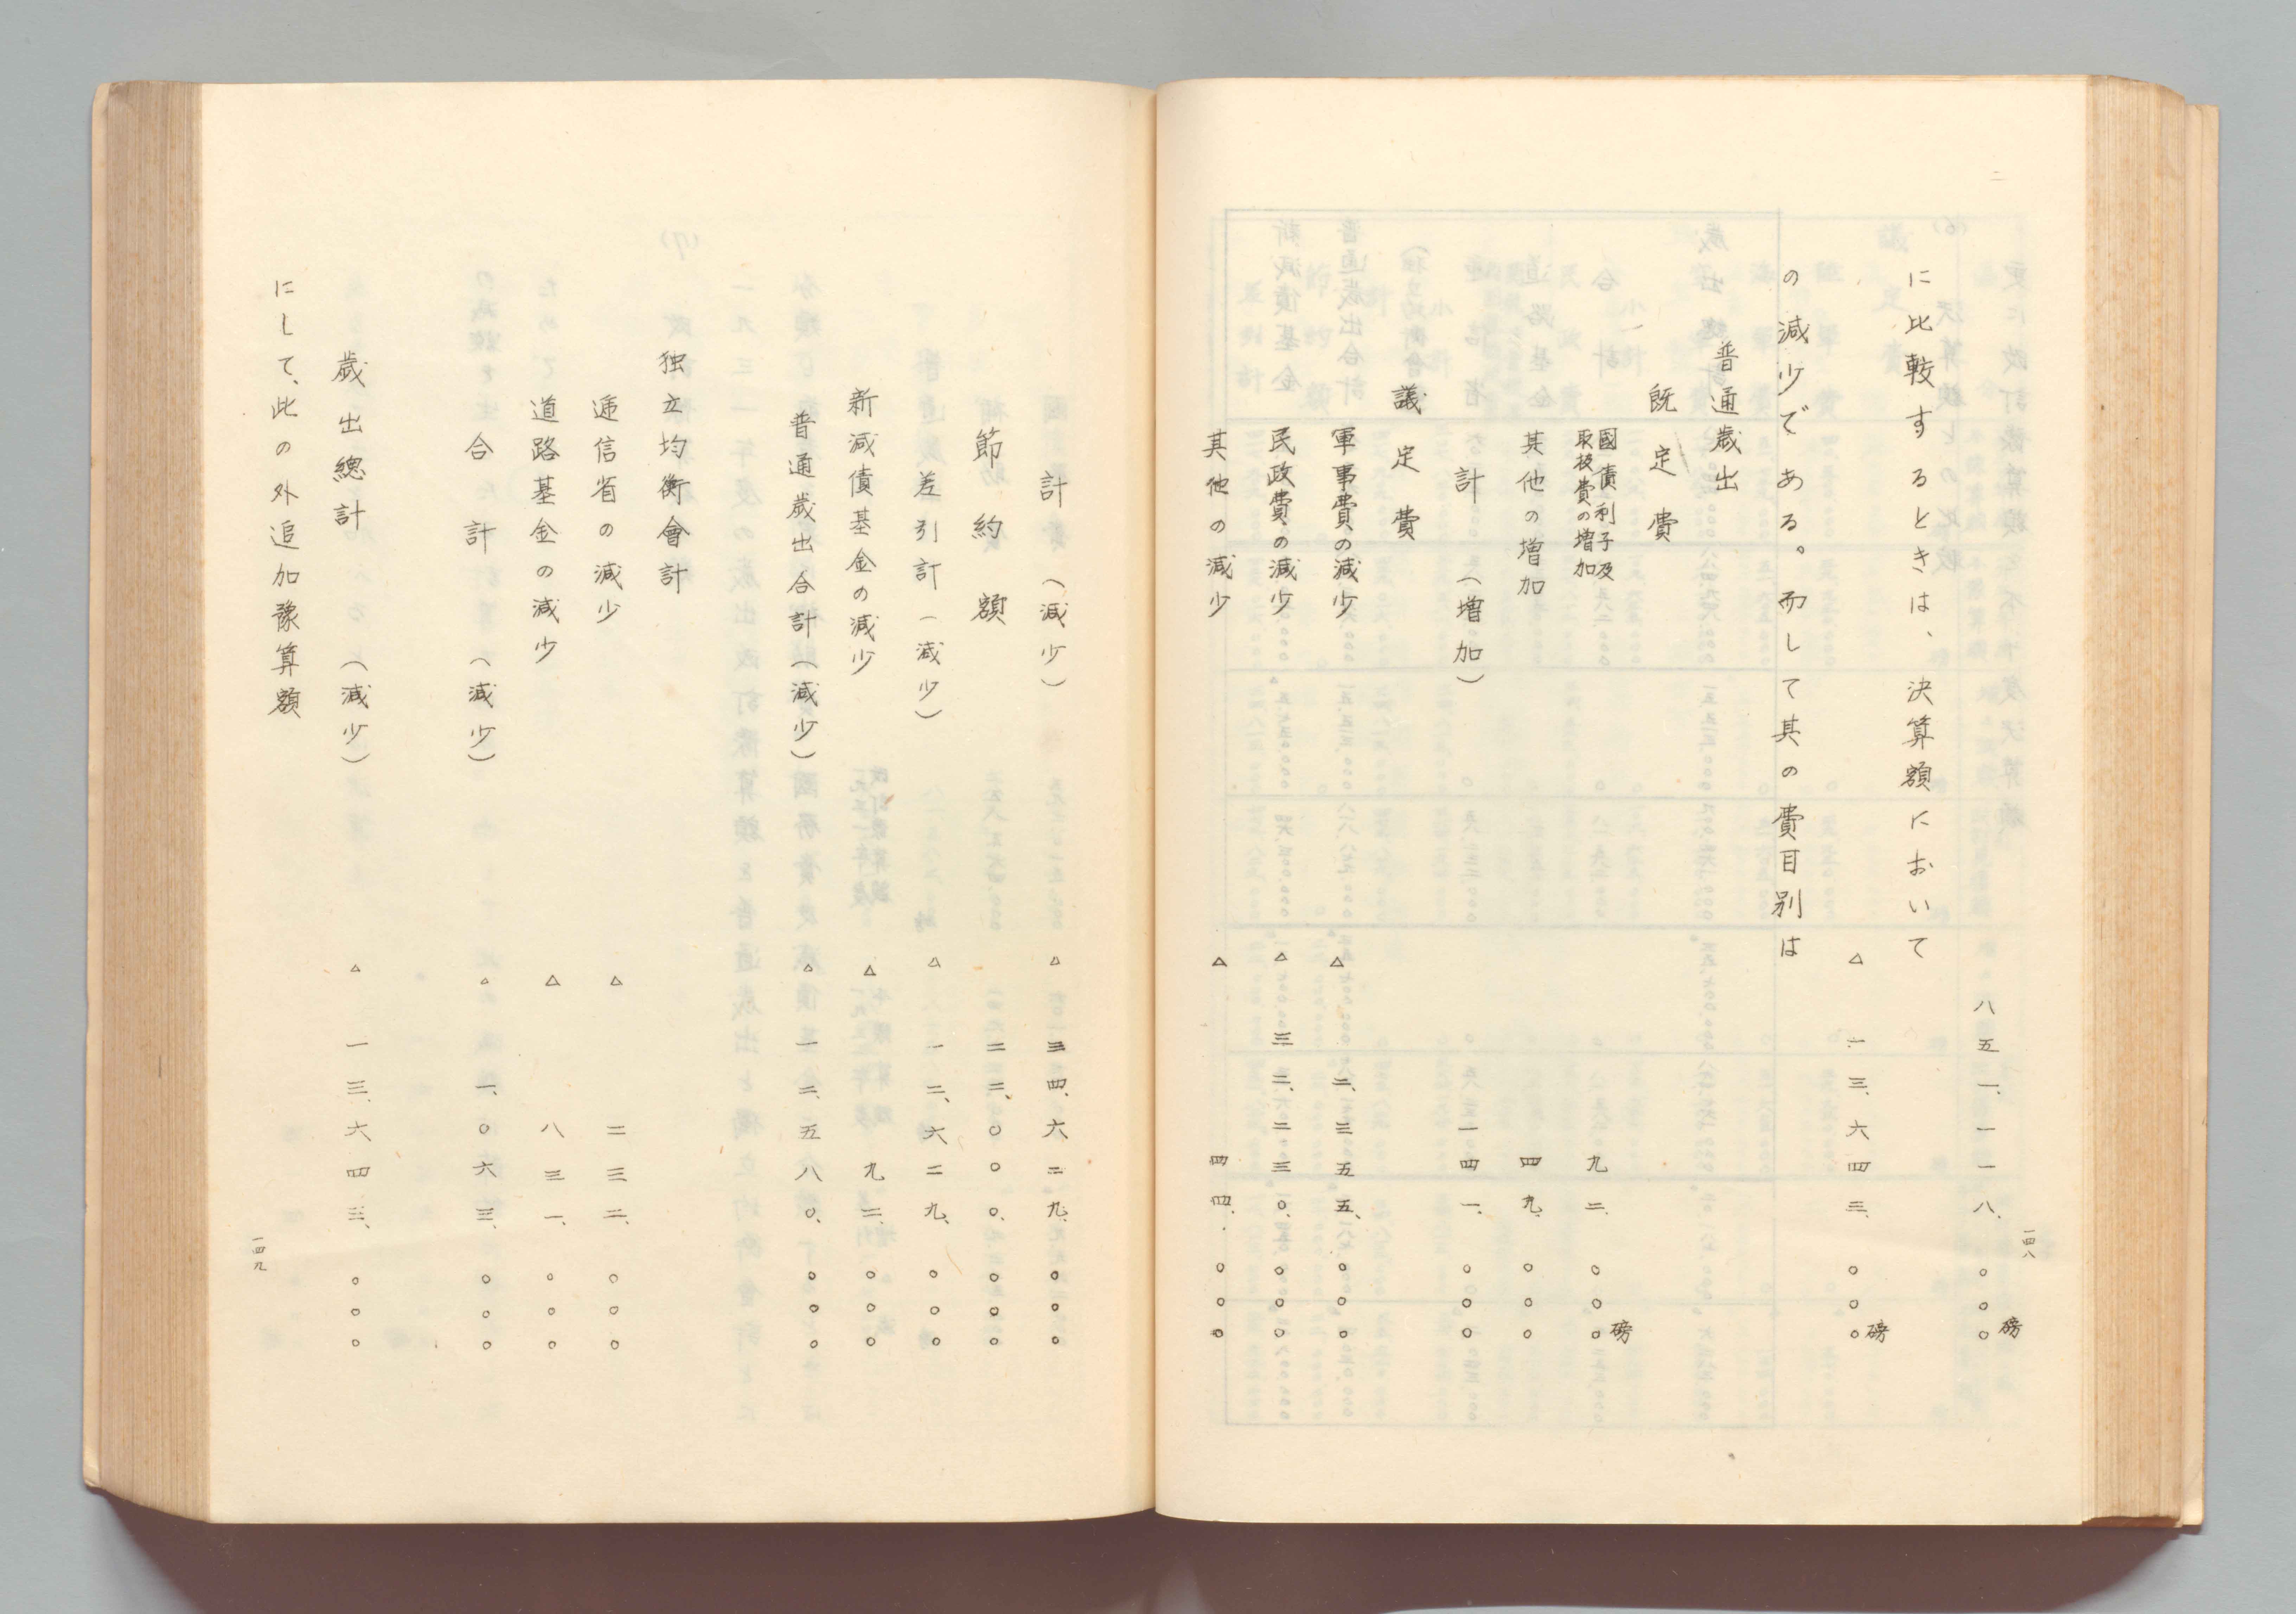 八五一、一一八、〇〇〇磅
に比較するときは、決算額において
△一三、六四三、〇〇〇磅
の減少である。而して其の費目別は
普通歳出
既定費
國債利子及
取扱費の増加 九二、〇〇〇磅
其他の増加 四九、〇〇〇
計(増加) 一四一、〇〇〇
議定費
軍事費の減少 △二、三五五、〇〇〇
民政費の減少 △三二、二三〇、〇〇〇
其他の減少 △四四、〇〇〇
一四八
計(減少) △三四、六二九、〇〇〇
節約額 二二、〇〇〇、〇〇〇
差引計(減少) △一二、六二九、〇〇〇
新減債基金の減少 △九二、〇〇〇
普通歳出合計(減少) △一二、五八〇、〇〇〇
独立均衡會計
逓信省の減少 △二三二、〇〇〇
道路基金の減少 △八三一、〇〇〇
合計(減少) △一、〇六三、〇〇〇
歳出總計(減少) △一三、六四三、〇〇〇
にして、此の外追加豫算額
一四九